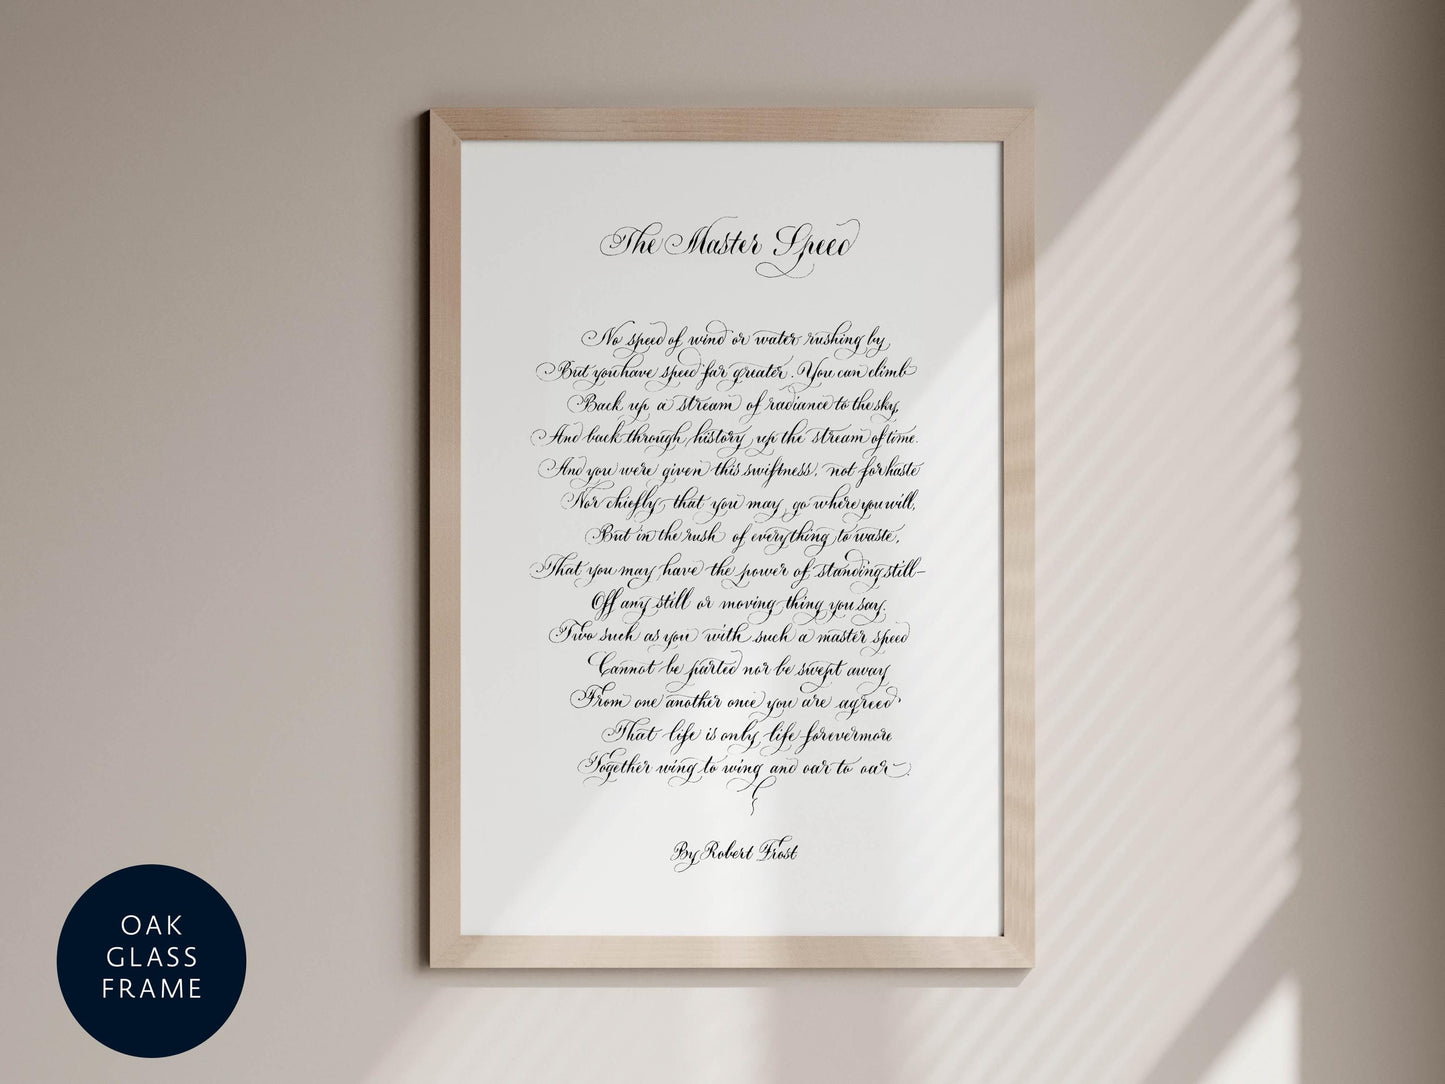 The Master Speed
No speed of wind or water rushing by
But you have speed far greater. You can climb
Back up a stream of radiance to the sky,
And back through history up the stream of time.
And you were given this swiftness, not for haste
Nor chiefly that you may go where you will,
But in the rush of everything to waste,
That you may have the power of standing still—
Off any still or moving thing you say.
Two such as you with such a master speed
Cannot be parted nor be swept away
From one another once you are agreed
That life is only life forevermore
Together wing to wing and oar to oar.
By Robert Frost
OAK
GLASS
FRAME